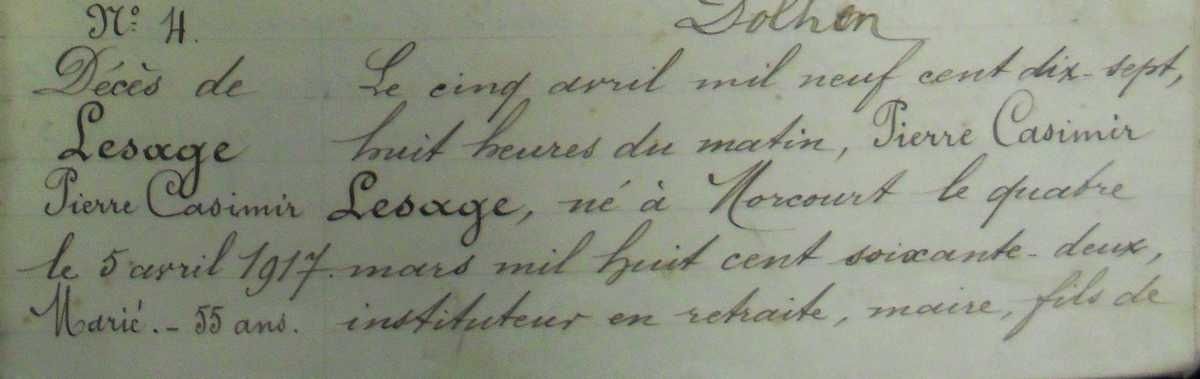 N° 4.
Dolhen
Décès de
Lesage
Pierre Casimir
le 5 avril 1917.
Marié. - 55 ans.
Le cinq avril mil neuf cent dix-sept,
huit heures du matin, Pierre Casimir
Lesage, né à Morcourt le quatre
mars mil huit cent soixante-deux,
instituteur en retraite, maire, fils de